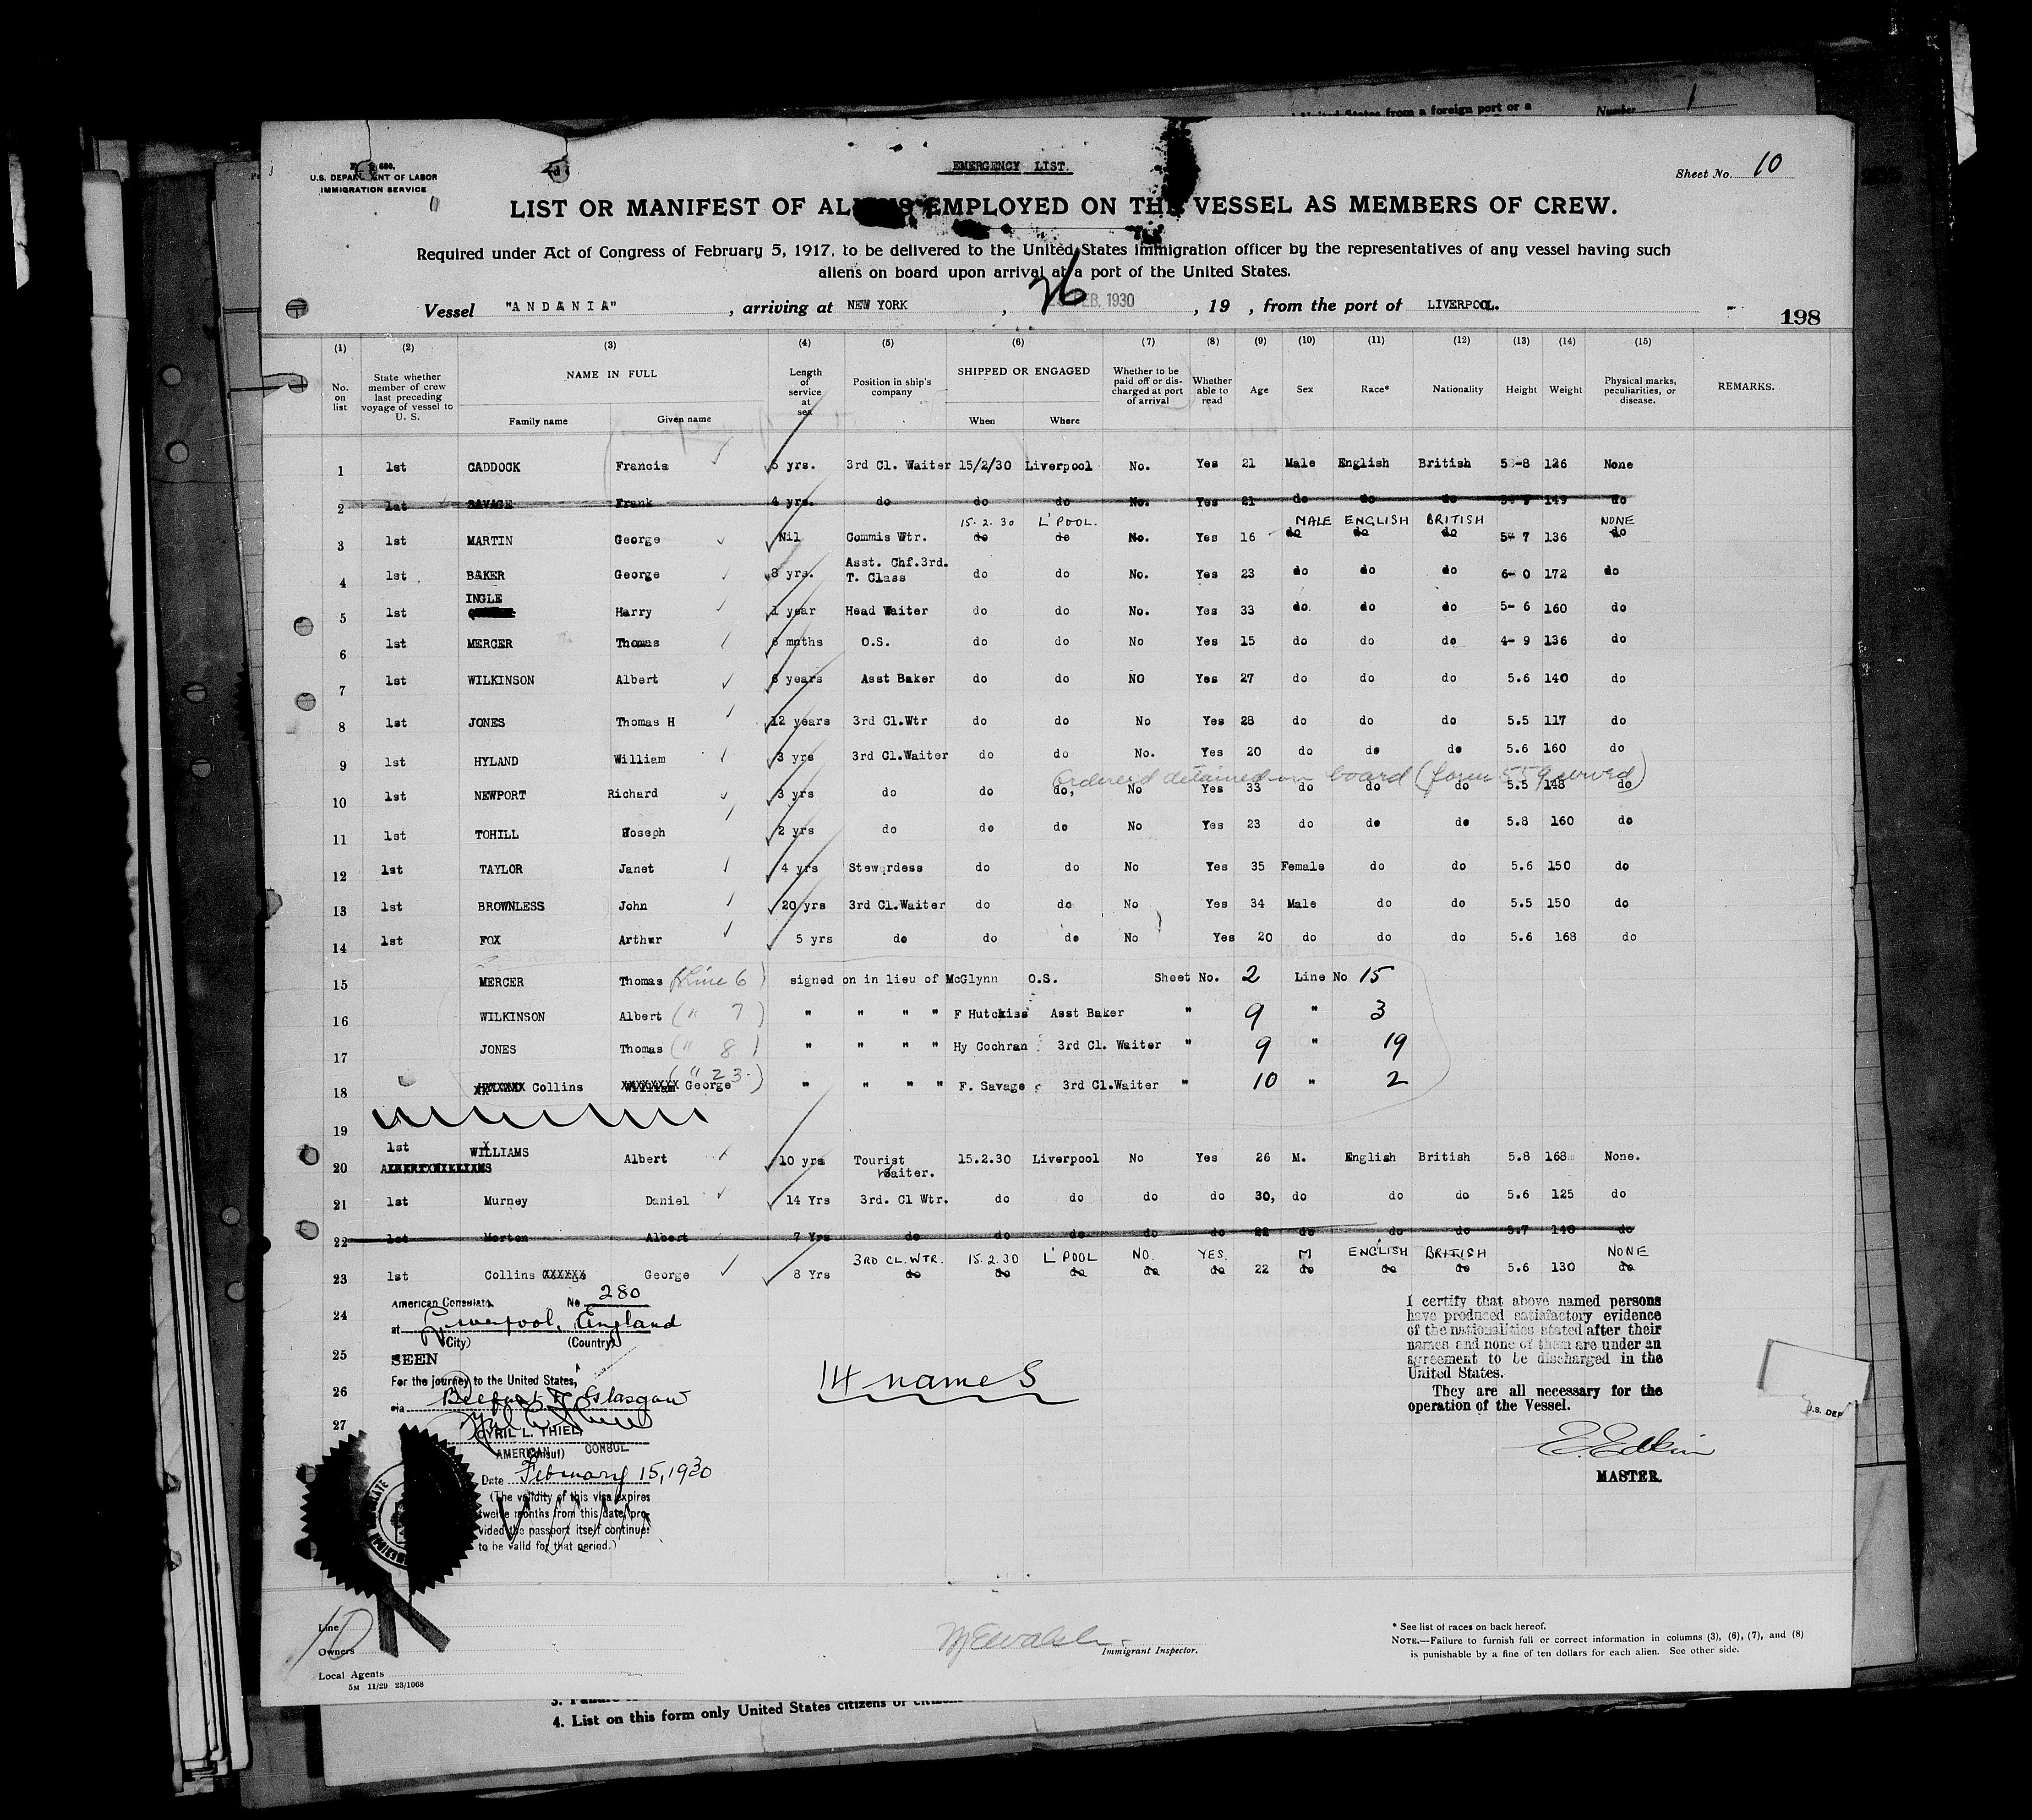 United States from a foreign port or a
Number 1
686.
U.S. DEPARTMENT OF LABOR
IMMIGRATION SERVICE
EMERGENCY LIST.
Sheet No. 10
LIST OR MANIFEST OF ALIENS EMPLOYED ON THE VESSEL AS MEMBERS OF CREW.
Required under Act of Congress of February 5, 1917, to be delivered to the United States immigration officer by the representatives of any vessel having such
aliens on board upon arrival at a port of the United States.
Vessel "ANDANIA" , arriving at NEW YORK , 26 FEB. 1930 , 19 , from the port of LIVERPOOL.
198
(1) (2) (3) (4) (5) (6) (7) (8) (9) (10) (11) (12) (13) (14) (15)
No. on list
State whether member of crew last preceding voyage of vessel to U. S.
NAME IN FULL
Family name Given name
Length of service at sea
Position in ship's company
SHIPPED OR ENGAGED
When Where
Whether to be paid off or discharged at port of arrival
Whether able to read
Age Sex Race* Nationality Height Weight
Physical marks, peculiarities, or disease.
REMARKS.
1 1st CADDOCK Francis 5 yrs. 3rd Cl. Waiter 15/2/30 Liverpool No. Yes 21 Male English British 5-8 126 None
2 1st SAVAGE Frank 4 yrs. do do do No. Yes 21 do do do 149 do
15.2.30 L'POOL. MALE ENGLISH BRITISH NONE
3 1st MARTIN George Nil Commis Wtr. do do No. Yes 16 do do do 5-7 136 do
4 1st BAKER George 8 yrs. Asst. Chf.3rd. T. Class do do No. Yes 23 do do do 6-0 172 do
5 1st INGLE Harry 1 year Head Waiter do do No. Yes 33 do. do do 5-6 160 do
6 1st MERCER Thomas 6 mnths O.S. do do No Yes 15 do do do 4-9 136 do
7 1st WILKINSON Albert 6 years Asst Baker do do NO Yes 27 do do do 5.6 140 do
8 1st JONES Thomas H 12 years 3rd Cl.Wtr do do No Yes 28 do do do 5.5 117 do
9 1st HYLAND William 3 yrs 3rd Cl.Waiter do do No. Yes 20 do do do 5.6 160 do
Ordered detained on board (form 559 served)
10 1st NEWPORT Richard 3 yrs do do do, No Yes 33 do do do 5.5 148 do
11 1st TOHILL Joseph 2 yrs do do do No Yes 23 do do do 5.8 160 do
12 1st TAYLOR Janet 4 yrs Stewardess do do No Yes 35 Female do do 5.6 150 do
13 1st BROWNLESS John 20 yrs 3rd Cl.Waiter do do No Yes 34 Male do do 5.5 150 do
14 1st FOX Arthur 5 yrs do do do No Yes 20 do do do 5.6 168 do
15 MERCER Thomas (Line 6) signed on in lieu of McGlynn O.S. Sheet No. 2 Line No 15
16 WILKINSON Albert (" 7) " " " " F Hutckiss Asst Baker " 9 " 3
17 JONES Thomas (" 8) " " " " Hy Cochran 3rd Cl. Waiter " 9 " 19
18 Collins George (" 23.) " " " " F. Savage 3rd Cl.Waiter " 10 " 2
19
20 1st WILLIAMS Albert 10 yrs Tourist Waiter. 15.2.30 Liverpool No Yes 26 M. English British 5.8 168 None.
ALBERT WILLIAMS
21 1st Murney Daniel 14 Yrs 3rd. Cl Wtr. do do do do 30, do do do 5.6 125 do
22 1st Morton Albert 7 Yrs do do do do do 22 do do do 5.7 148 do
3RD CL. WTR. 15.2.30 L'POOL NO. YES. M ENGLISH BRITISH NONE
23 1st Collins XXXXXX George 8 Yrs do do do do do 22 do do do 5.6 130 do
24
25
26
27
American Consulate No 280
at Liverpool, England
(City) (Country)
SEEN
For the journey to the United States,
via Belfast & Glasgow
CYRIL L. THIEL
AMERICAN CONSUL
(Consul)
Date February 15, 1930
(The validity of this visa expires
twelve months from this date, pro-
vided the passport itself continues
to be valid for that period.)
14 names
I certify that above named persons
have produced satisfactory evidence
of the nationalities stated after their
names and none of them are under an
agreement to be discharged in the
United States.
They are all necessary for the
operation of the Vessel.
E. Edkin
MASTER.
U.S. DEP
10
Line
Owners
Local Agents
5M 11/29 23/1068
Immigrant Inspector.
* See list of races on back hereof.
NOTE.—Failure to furnish full or correct information in columns (3), (6), (7), and (8)
is punishable by a fine of ten dollars for each alien. See other side.
4. List on this form only United States citizens or